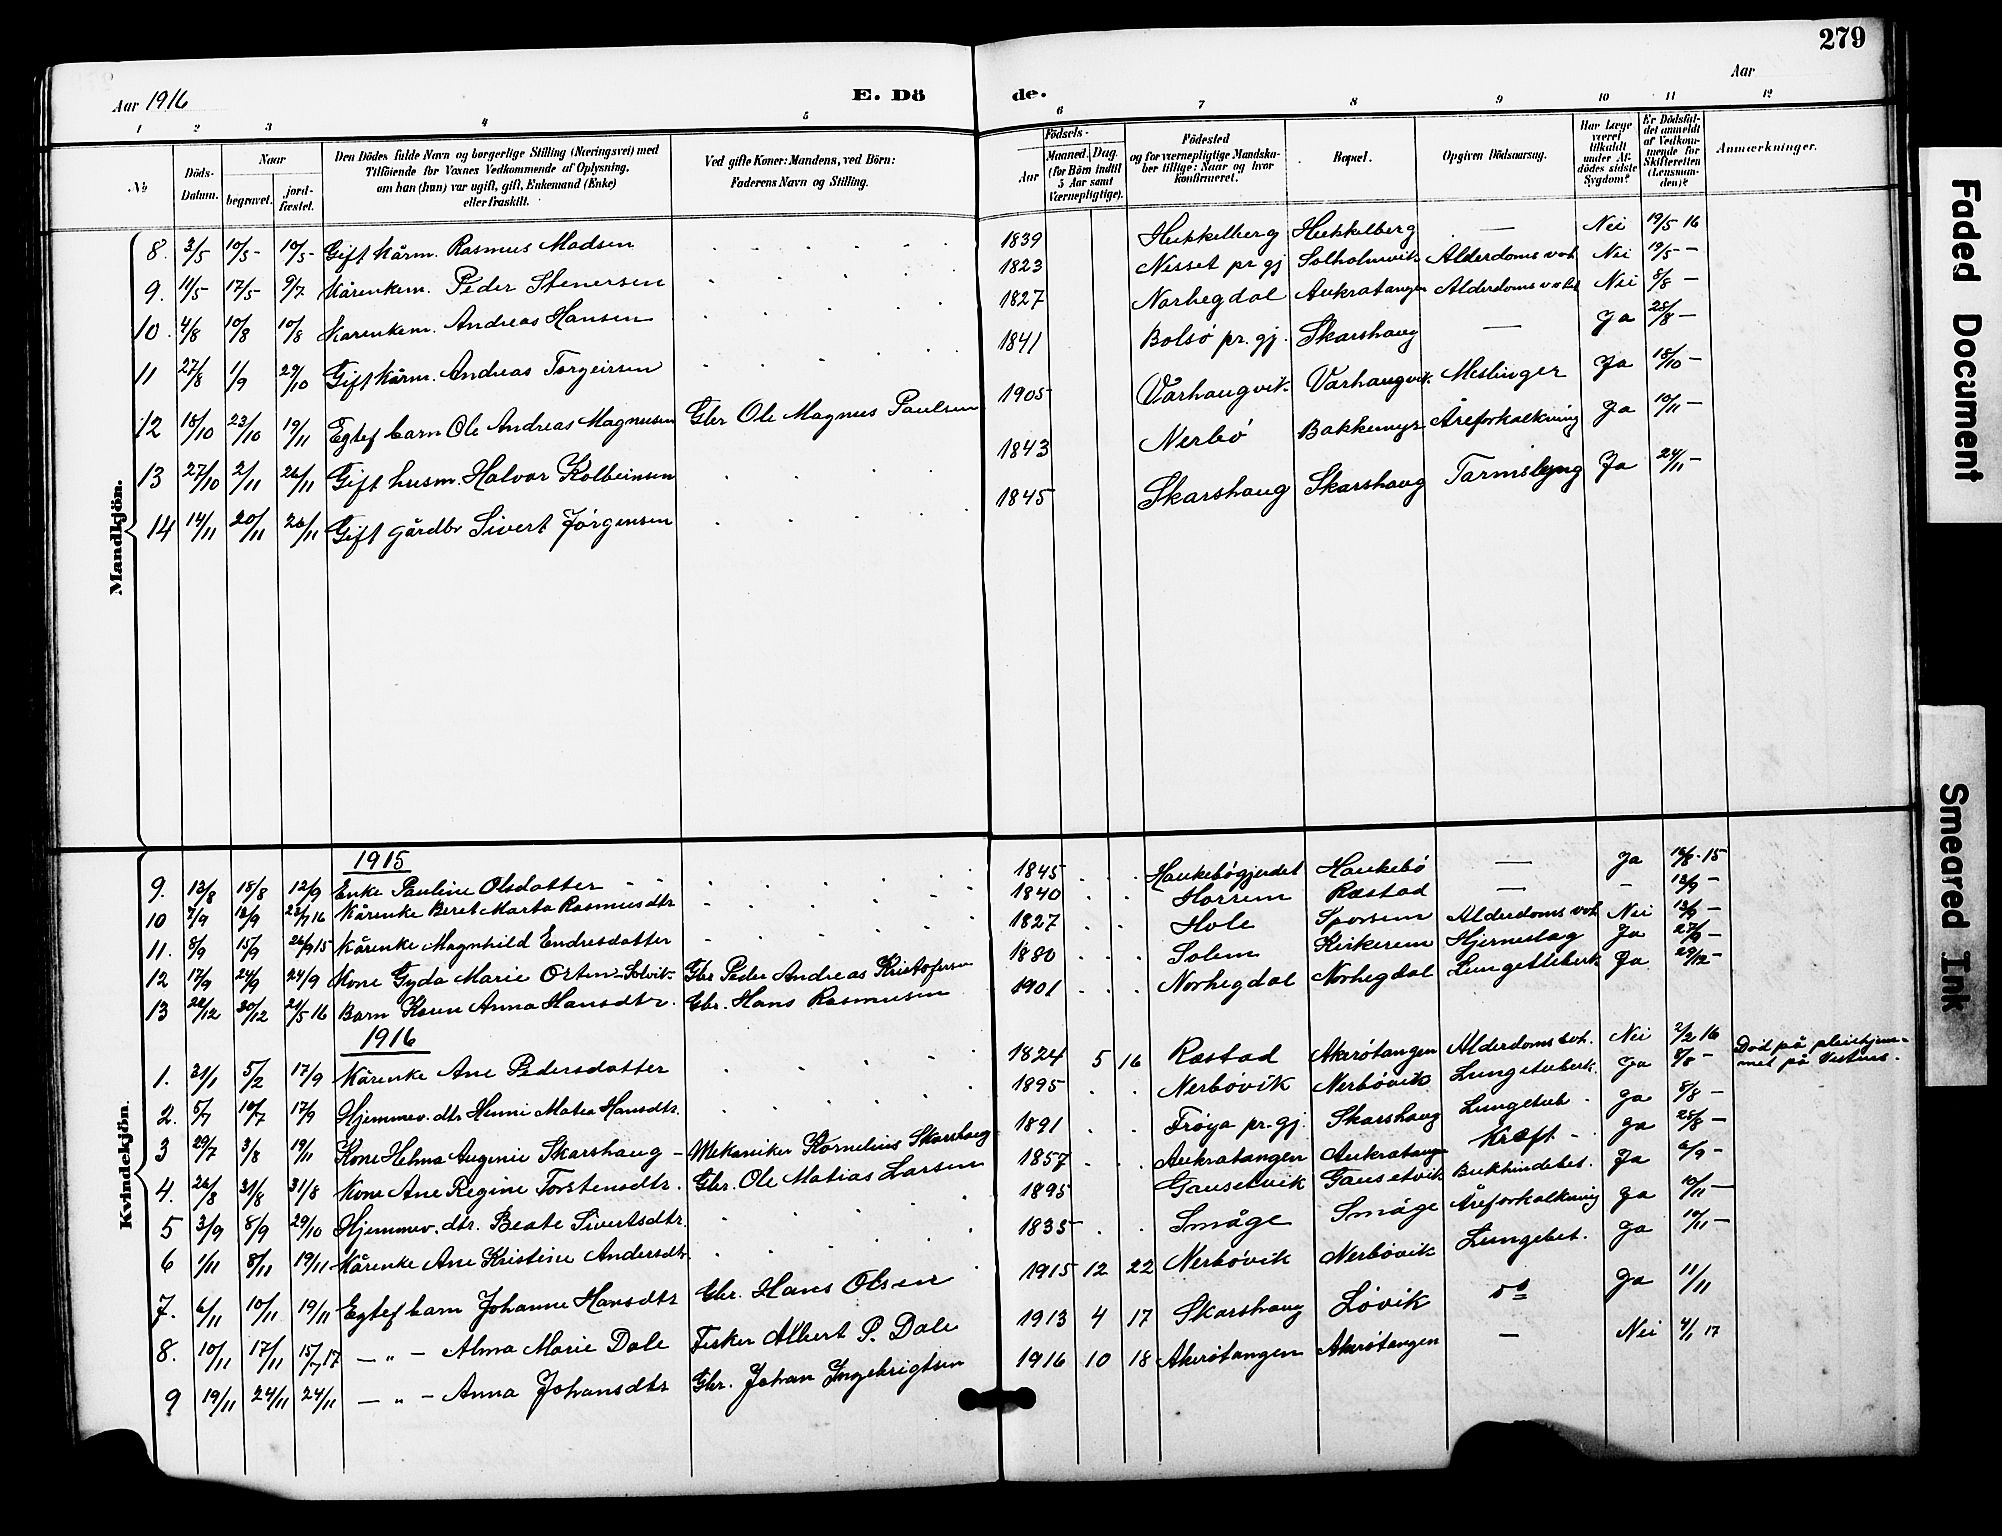 279
Aar 1916 E. Dö de. Aar
1 2 3 4 5 6 7 8 9 10 11 12
No
Döds-Datum.
Naar
begravet.
jord-fæstet.
Den Dödes fulde Navn og borgerlige Stilling (Næringsvei) med
Tilföiende for Voxnes Vedkommende af Oplysning,
om han (hun) var ugift, gift, Enkemand (Enke)
eller fraskilt.
Ved gifte Koner: Mandens, ved Börn:
Faderens Navn og Stilling.
Födsels-
Aar
Maaned. Dag.
(for Börn indtil
5 Aar samt
Værnepligtige).
Födested
og for værnepligtige Mandska-
ber tillige: Naar og hvor
konfirmeret.
Bopæl.
Opgiven Dödsaarsag.
Har Læge
været
tilkaldt
under Af-
dödes sidste
Sygdom?
Er Dödsfal-
det anmeldt
af Vedkom-
mende for
Skifteretten
(Lensman-
den)?
Anmærkninger.
Mandkjön.
8. 3/5 10/5- 10/5- Gift kårm. Rasmus Madsen 1839 Hukkelberg Hukkelberg — Nei 19/5 16
9. 14/5 17/5 9/7 Kårenkem. Peder Stenersen 1823 Nesset pr gj Solholmvik Alderdoms Nei 19/5 —
10. 4/8 10/8 10/8 Kårenkem. Andreas Hansen 1827 Norhegdal Aukratangen Alderdoms Nei 8/8 —
11 27/8 1/9 29/10 Gift kårm. Andreas Torgeirsen 1841 Bolsö pr. gj. Skarshaug — Ja 28/8 —
12 18/10 23/10 19/11 Egtef barn Ole Andreas Magnusen Gbr Ole Magnus Paulsen 1905 Varhaugvik. Varhaugvik. Meslinger Ja 18/10 —
13 27/10 2/11 26/11 Gift husm. Halvor Kolbeinsen 1843 Nerbö Bakkemyr Åreforkalkning Ja 10/11 —
14 14/11 20/11 26/11 Gift gårdbr Sivert Jörgensen 1845 Skarshaug Skarshaug Tarmslyng Ja 24/11 —
Kvindekjön.
1915
9. 13/8 18/8 12/9 Enke Pauline Olsdatter 1845 Haukebögjerdet Haukebö — Ja 15
10 7/9 12/9 16 Kårenke Beret Marta Rasmusdtr 1840 Horrem Ræstad — —
11. 8/9 15/9 26/9 15 Kårenke Magnhild Endresdatter 1827 Hole Sporsem Alderdoms Nei
12 17/9 24/9 24/9 Kone Gyda Marie Solvik Gbr Peder Andreas Kristofersen 1880 Solem Kirkerem Hjerneslag Ja 27/9 —
13 22/12 30/12 21/5 16 Barn Karen Anna Hansdtr. Gbr. Hans Rasmusen 1901 Norhegdal Norhegdal Ja 29/12 —
1916
1. 31/1 5/2 17/9 Kårenke Ane Pedersdatter 1824 5 16 Ræstad Akerötangen Alderdoms Nei 2/2 16 Död på pleiehjem-
met på Vestnes.
2. 5/7 10/7 17/9 Hjemmev. dtr Henni Matea Hansdtr. 1895 Nerbövik Nerbövik Lungetuberk. Ja 8/8 —
3 29/7 3/8 19/11 Kone Helma Augenie Skarshaug — Mekaniker Kornelius Skarshaug 1891 Fröya pr. gj. Skarshaug Lungetub. Ja 8/8 —
4. 26/8 31/8 31/8 Kone Ane Regine Torstensdtr. Gbr. Ole Matias Larsen 1857 Aukratangen Aukratangen Kræft — Ja 28/8 —
5 3/9 8/9 29/10 Hjemmev. dtr. Beate Sivertsdtr. 1895 Gausetvik Gausetvik Bukhindebet. Ja 6/9 —
6 1/11 8/11 19/11 Kårenke Ane Kristine Andersdtr 1835 Småge Småge Åreforkalkning Ja 10/11 —
7. 6/11 10/11 19/11 Egtef barn Johanne Hansdtr Gbr. Hans Olsen 1915 12 22 Nerbövik Nerbövik Lungebet. Ja 10/11 —
8. 10/11 17/11 15/7 17 — „ — Alma Marie Dale Fisker Albert P. Dale 1913 4 17 Skarshaug Lövik Ja 11/11
9 19/11 24/11 24/11 — „ — Anna Johansdtr Gbr. Johan Ingebrigtsen 1916 10 18 Akerötangen Akerötangen — Nei 4/1 17
Faded Document
Smeared Ink